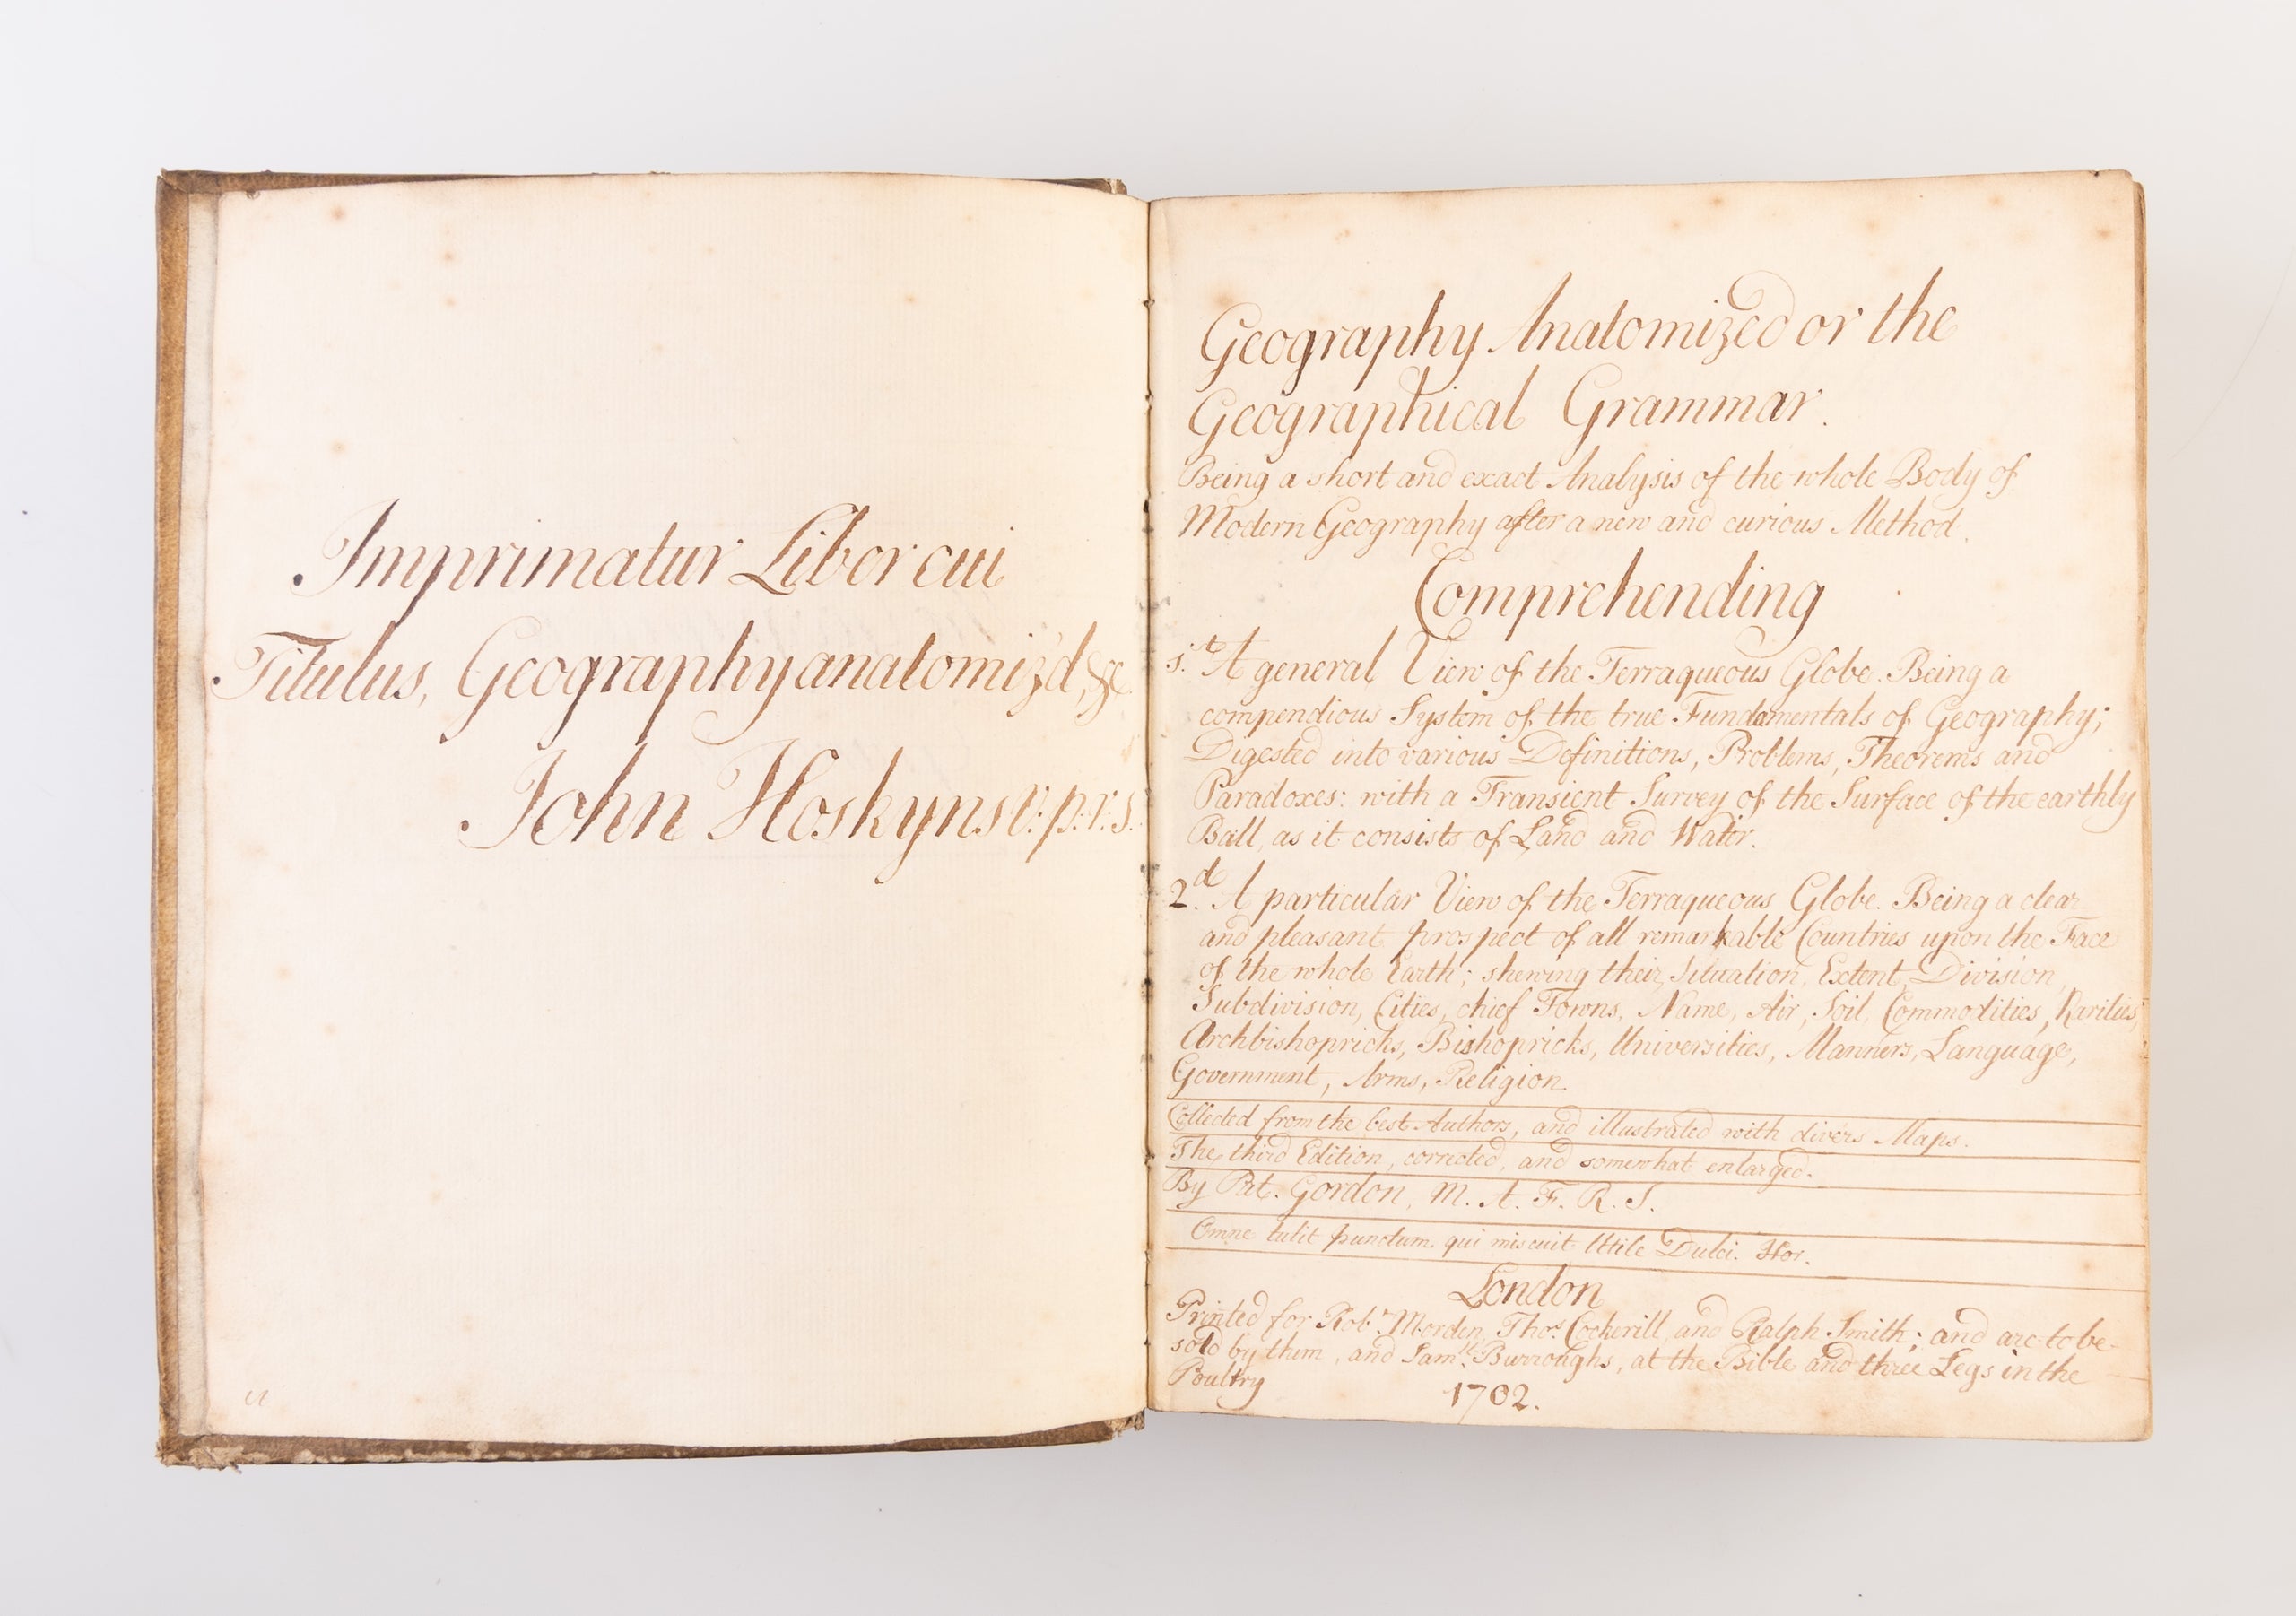 Imprimatur Liber cui
Titulus, Geography anatomiz'd, &c.
John Hoskyns v:p:r:s.
Geography Anatomized or the
Geographical Grammar.
Being a short and exact Analysis of the whole Body of
Modern Geography after a new and curious Method.
Comprehending
1.st A general View of the Terraqueous Globe. Being a
compendious System of the true Fundamentals of Geography;
Digested into various Definitions, Problems, Theorems and
Paradoxes: with a Transient Survey of the Surface of the earthly
Ball, as it consists of Land and Water.
2.d A particular View of the Terraqueous Globe. Being a clear
and pleasant prospect of all remarkable Countries upon the Face
of the whole Earth; shewing their Situation, Extent, Division,
Subdivision, Cities, chief Towns, Name, Air, Soil, Commodities, Rarities,
Archbishopricks, Bishopricks, Universities, Manners, Language,
Government, Arms, Religion.
Collected from the best Authors, and illustrated with divers Maps.
The third Edition, corrected, and somewhat enlarged.
By Pat. Gordon, M. A. F. R. S.
Omne tulit punctum qui miscuit Utile Dulci. Hor.
London
Printed for Rob.t Morden, Tho.s Cockerill, and Ralph Smith; and are to be
sold by them, and Sam.ll Burroughs, at the Bible and three Legs in the
Poultry
1702.